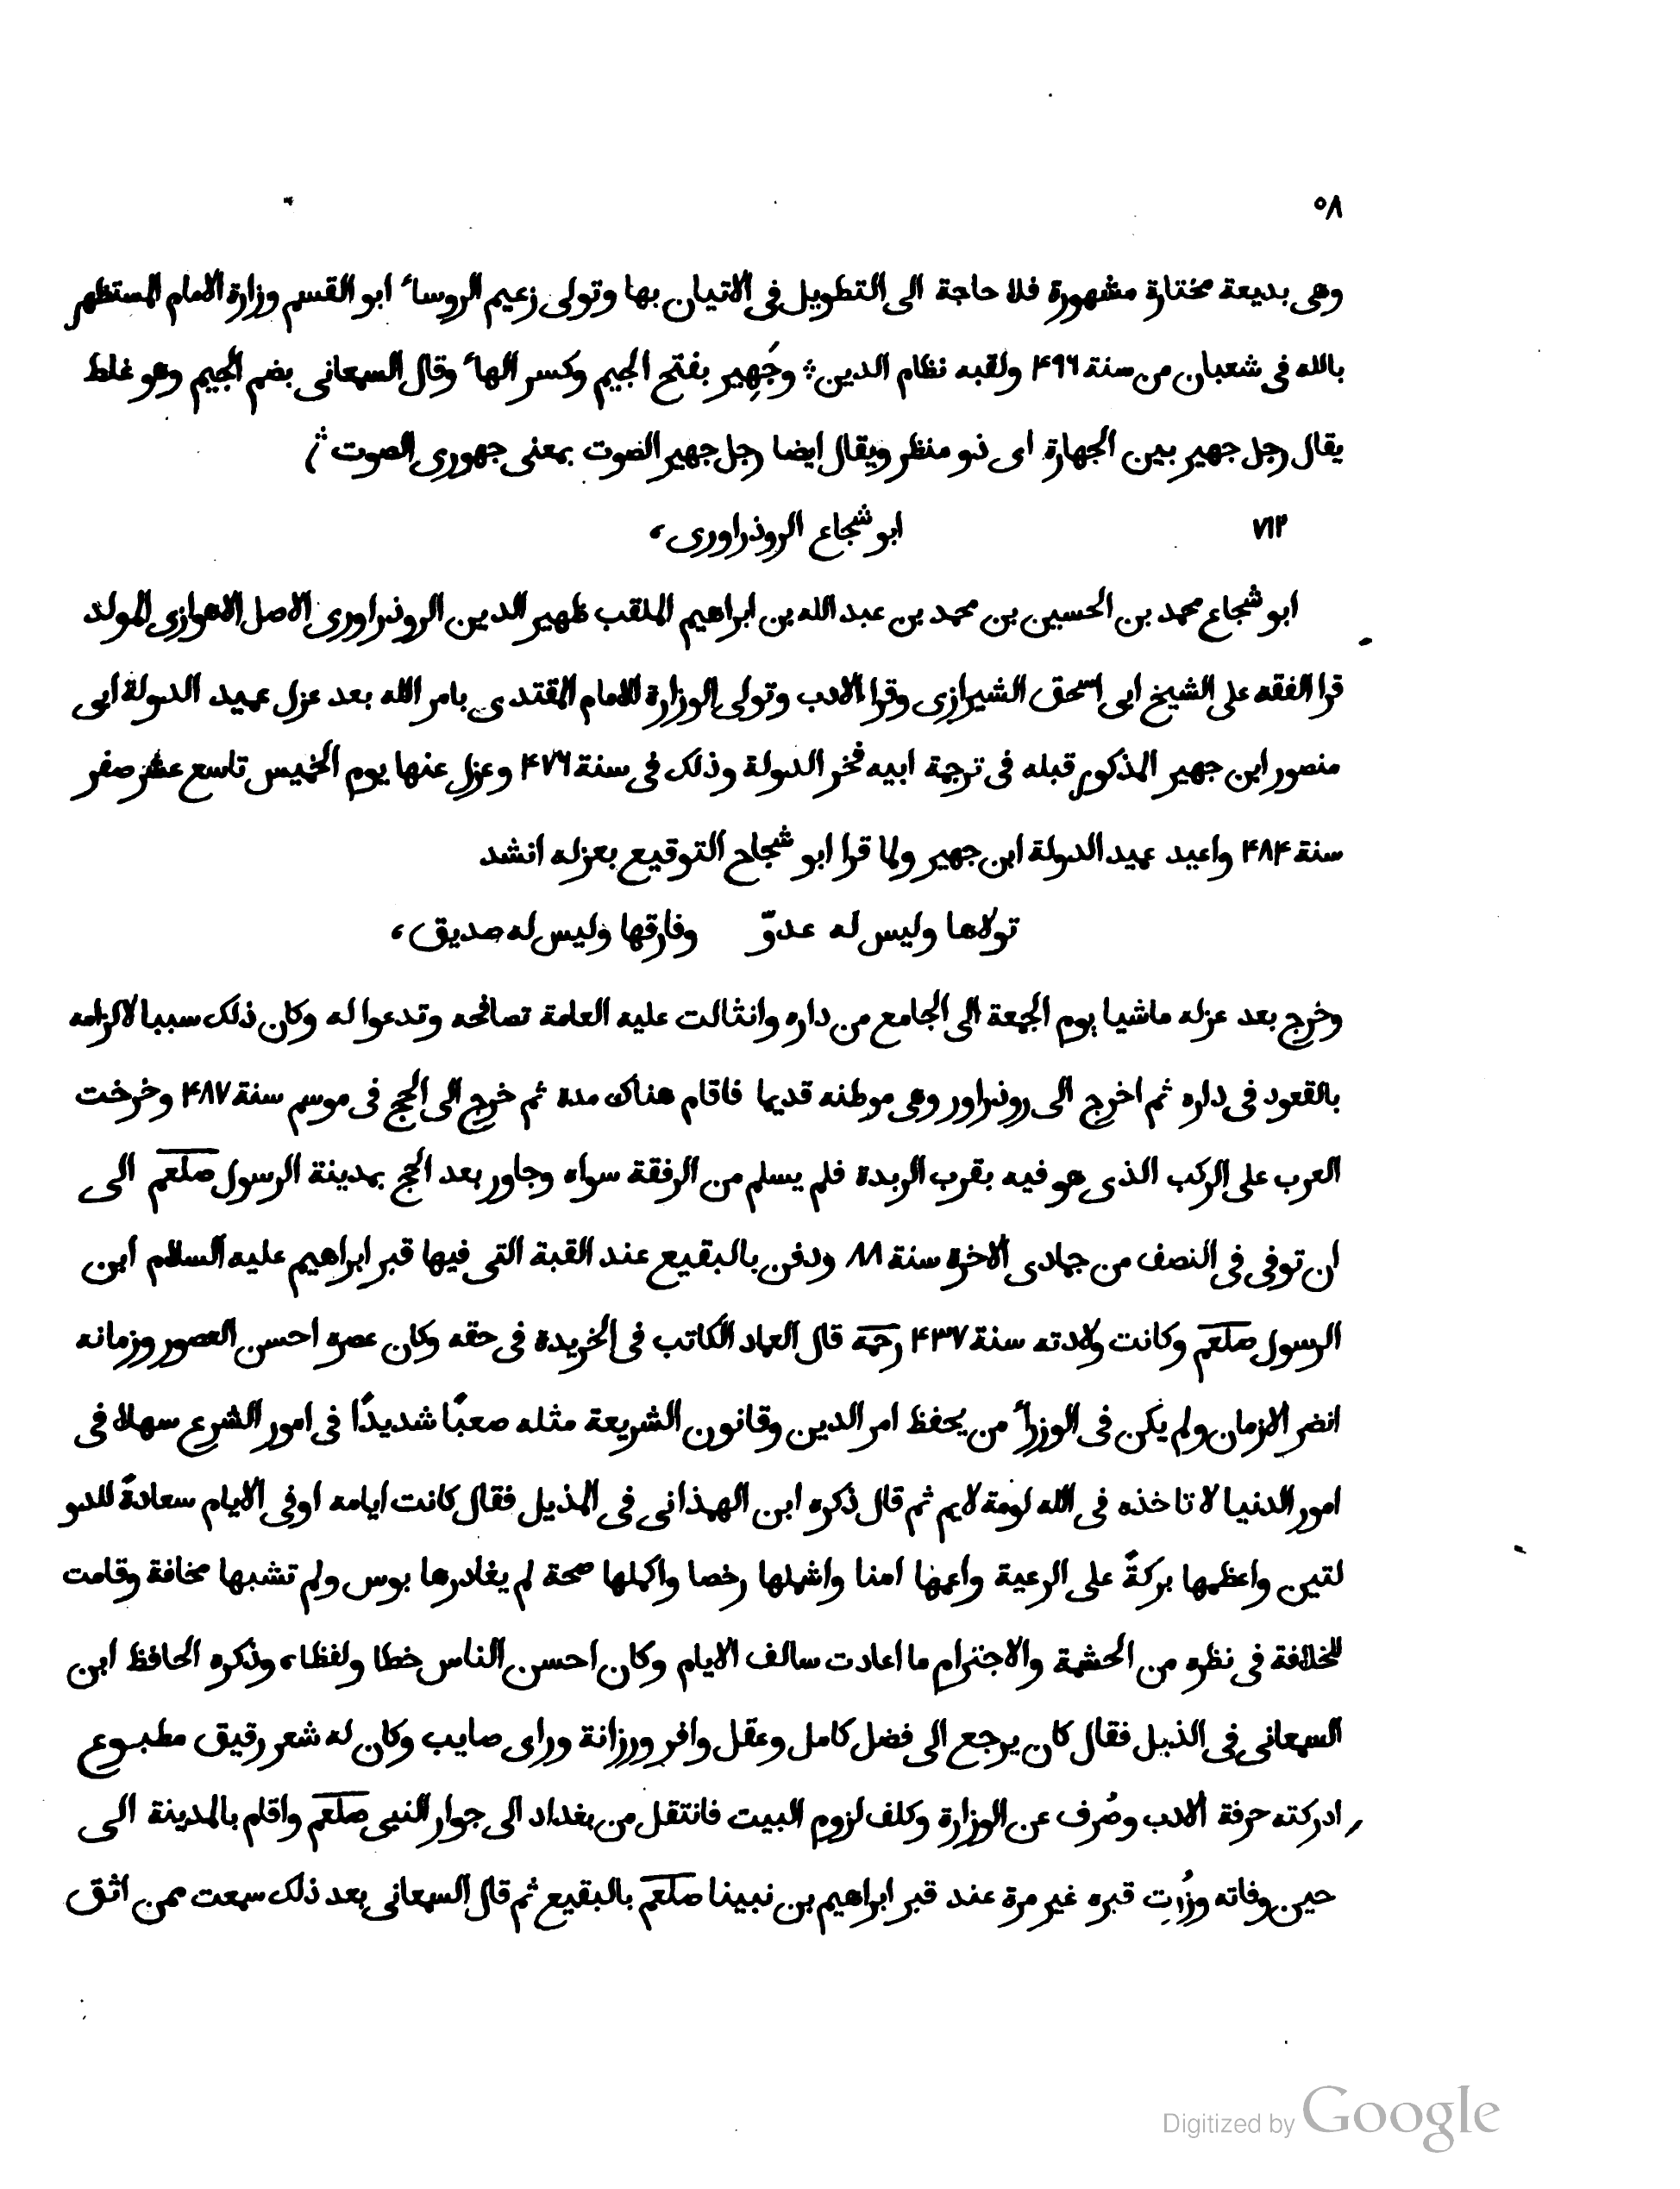 ٥٨
وهى بديعة مختارة مشهورة فلا حاجة الى التطويل فى الاتيان بها وتولى زعيم الروساء ابو القسم وزارة الامام المستظهر
بالله فى شعبان من سنة ۴۹۶ ولقبه نظام الدين ؛ وجَهِير بفتح الجيم وكسر الهاء وقال السمعانى بضم الجيم وهو غلط
يقال رجل جهير بين الجهارة اى ذو منظر ويقال ايضا رجل جهير الصوت بمعنى جهورى الصوت ؛
٧١٢
ابو شجاع الروذراورى،
ابو شجاع محمد بن الحسين بن محمد بن عبد الله بن ابراهيم الملقب ظهير الدين الروذراورى الاصل الاهوازى المولد
قرا الفقه على الشيخ ابى اسحق الشيرازى وقرا الادب وتولى الوزارة للامام المقتدى بامر الله بعد عزل عميد الدولة ابى
منصور ابن جهير المذكور قبله فى ترجمة ابيه فخر الدولة وذلك فى سنة ۴۷۶ وعزل عنها يوم الخميس تاسع عشر صفر
سنة ۴۸۴ واعيد عميد الدولة ابن جهير ولما قرا ابو شجاح التوقيع بعزله انشد
تولاها وليس له عدوّ وفارقها وليس له صديق،
وخرج بعد عزله ماشيا يوم الجمعة الى الجامع من داره وانثالت عليه العامة تصافحه وتدعوا له وكان ذلك سببا لالزامه
بالقعود فى داره ثم اخرج الى روذراور وهى موطنه قديما فاقام هناك مدة ثم خرج الى الحج فى موسم سنة ۴۸۷ وخرخت
العرب على الركب الذى هو فيه بقرب الربدة فلم يسلم من الرفقة سواه وجاور بعد الحج بمدينة الرسول صلعم الى
ان توفى فى النصف من جمادى الاخرة سنة ۸۸ ودفن بالبقيع عند القبة التى فيها قبر ابراهيم عليه السلام ابن
الرسول صلعم وكانت ولادته سنة ۴۳۷ رحمه قال العماد الكاتب فى الخريدة فى حقه وكان عصره احسن العصور وزمانه
انضر الازمان ولم يكن فى الوزراء من يحفظ امر الدين وقانون الشريعة مثله صعبًا شديدًا فى امور الشرع سهلا فى
امور الدنيا لا تاخذه فى الله لومة لايم ثم قال ذكره ابن الهمذانى فى المذيل فقال كانت ايامه اوفى الايام سعادةً للدو
لتين واعظمها بركةً على الرعية واعمها امنا واشملها رخصا واكملها صحة لم يغادرها بوس ولم تشبها مخافة وقامت
للخلافة فى نظره من الحشمة والاجترام ما اعادت سالف الايام وكان احسن الناس خطا ولفظا، وذكره الحافظ ابن
السمعانى فى الذيل فقال كان يرجع الى فضل كامل وعقل وافر ورزانة وراى صايب وكان له شعر رقيق مطبوع
ادركته حرفة الادب وصُرف عن الوزارة وكلف لزوم البيت فانتقل من بغداد الى جوار النبى صلعم واقام بالمدينة الى
حين وفاته وزُرت قبره غير مرة عند قبر ابراهيم بن نبينا صلعم بالبقيع ثم قال السمعانى بعد ذلك سمعت ممن اثق
Digitized by Google